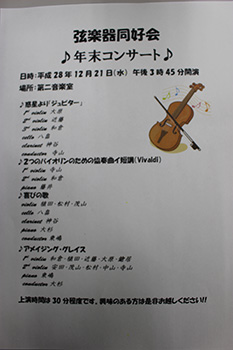 弦楽器同好会
♪年末コンサート♪
日時：平成28年12月21日(水) 午後3時45分開演
場所：第二音楽室
♪惑星より「ジュピター」
1st violin 大原
2nd violin 近藤
3rd violin 和倉
cello 八喜
clarinet 神谷
conductor 寺山
♪2つのバイオリンのための協奏曲イ短調(Vivaldi)
1st violin 寺山
2nd violin 和倉
piano 藤井
♪喜びの歌
1st violin 植田・松村・茂山
cello 八喜
clarinet 神谷
piano 大杉
conductor 東嶋
♪アメイジング・グレイス
1st violin 和倉・植田・近藤・大原・鎗屋
2nd violin 安田・茂山・松村・中山・寺山
piano 東嶋
conductor 大杉
上演時間は30分程度です。興味のある方は是非お越しください!!